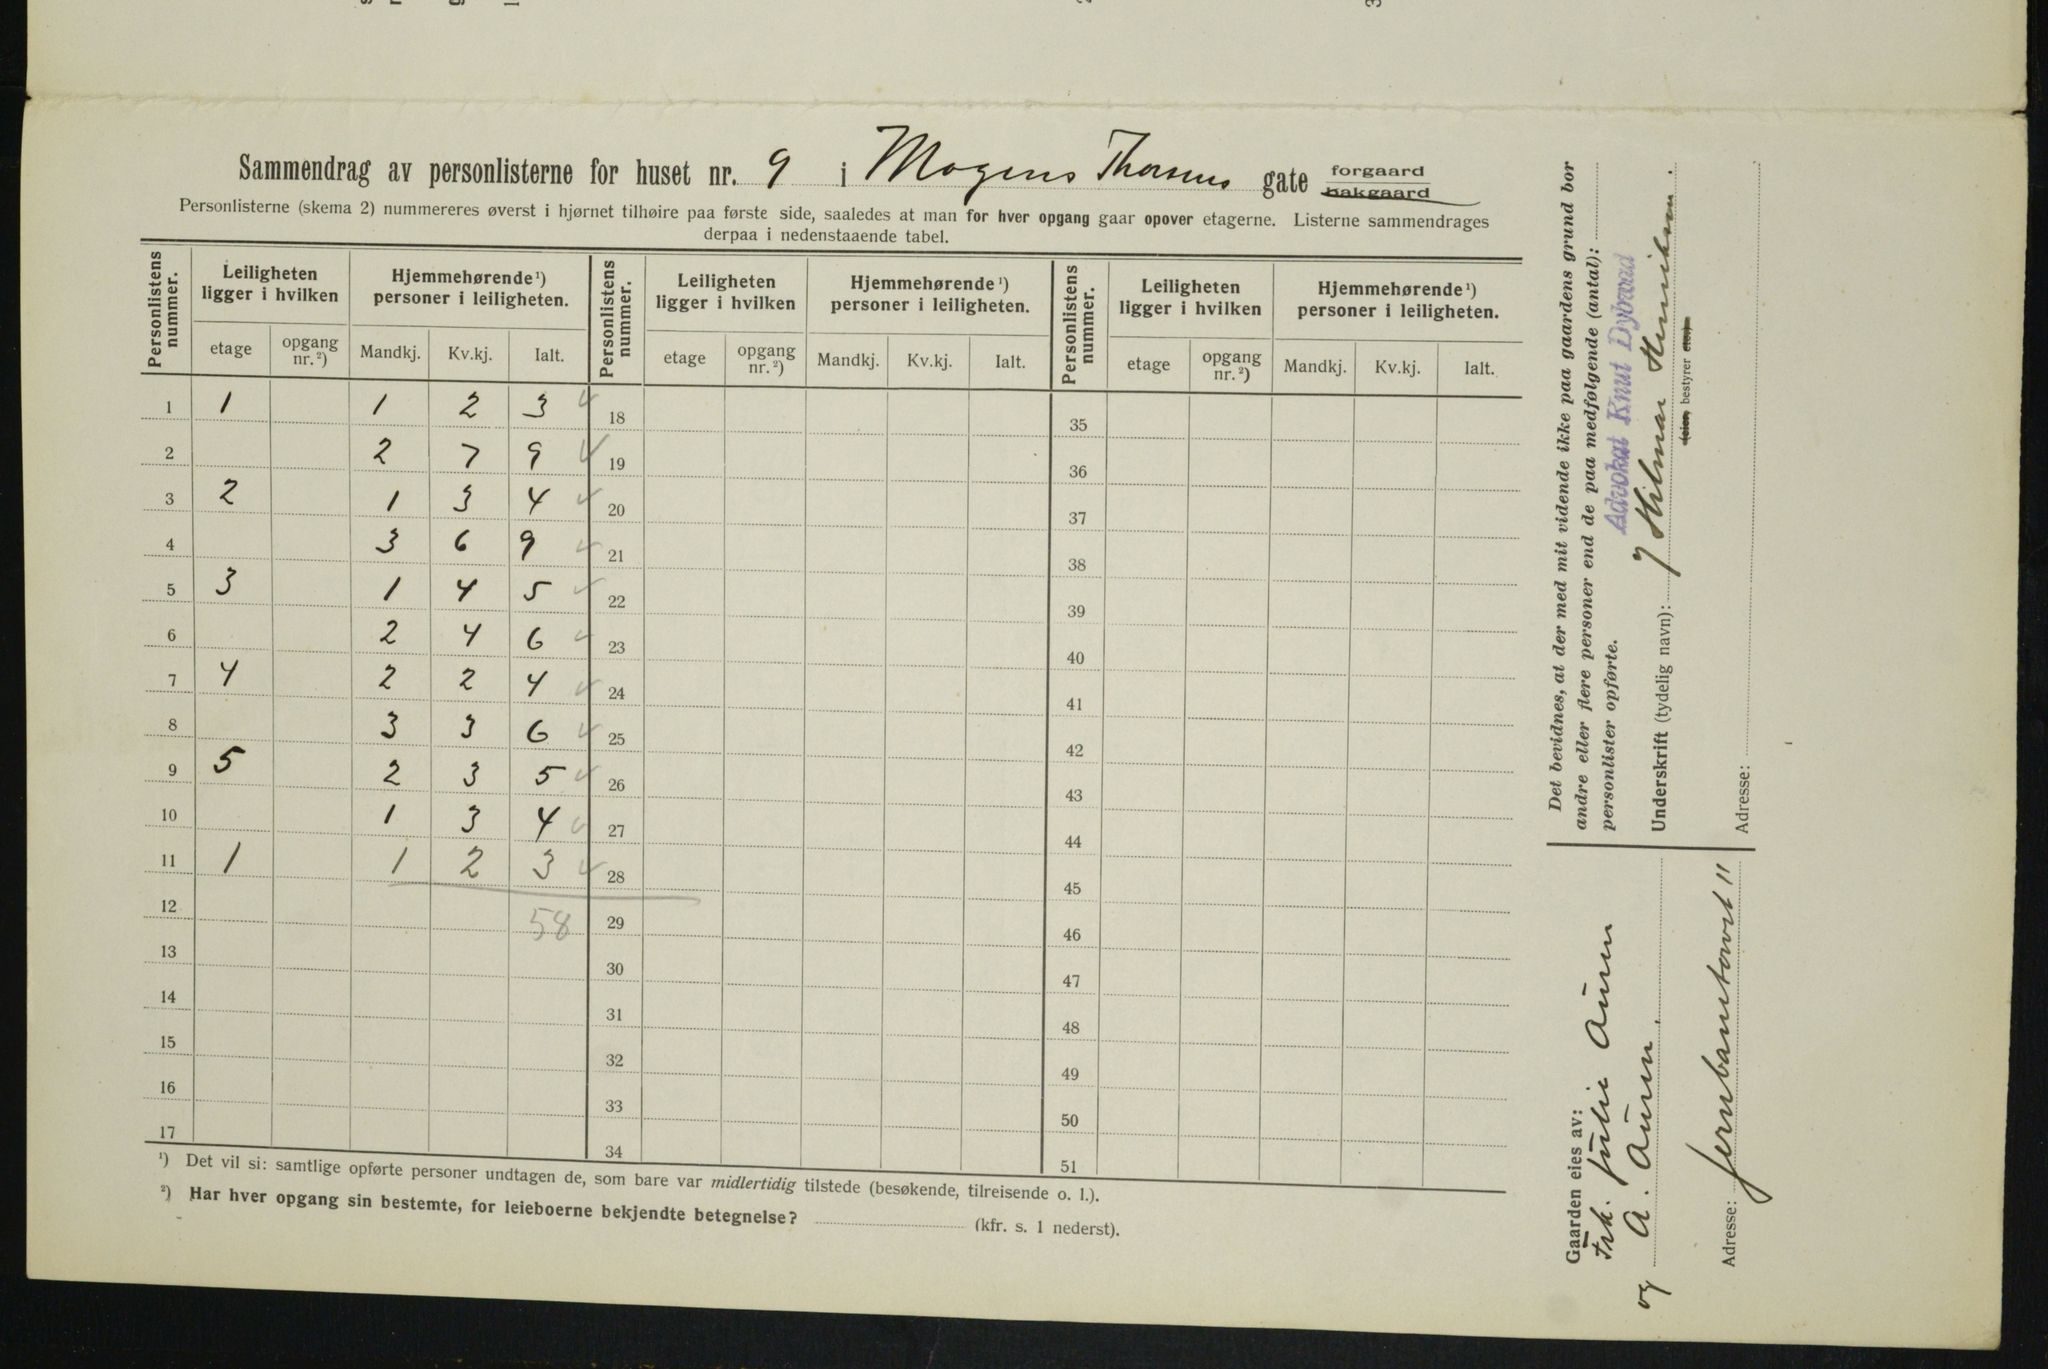 Sammendrag av personlisterne for huset nr. 9 i Mogens Thorsens gate forgaard bakgaard
Personlisterne (skema 2) nummereres øverst i hjørnet tilhøire paa første side, saaledes at man for hver opgang gaar opover etagerne. Listerne sammendrages
derpaa i nedenstaaende tabel.
Personlistens nummer. Leiligheten ligger i hvilken Hjemmehørende ¹) personer i leiligheten. Personlistens nummer. Leiligheten ligger i hvilken Hjemmehørende ¹) personer i leiligheten. Personlistens nummer. Leiligheten ligger i hvilken Hjemmehørende ¹) personer i leiligheten.
etage opgang nr. ²) Mandkj. Kv.kj. Ialt. etage opgang nr. ²) Mandkj. Kv.kj. Ialt. etage opgang nr. ²) Mandkj. Kv.kj. Ialt.
1 1 1 2 3 18 35
2 2 7 9 19 36
3 2 1 3 4 20 37
4 3 6 9 21 38
5 3 1 4 5 22 39
6 2 4 6 23 40
7 4 2 2 4 24 41
8 3 3 6 25 42
9 5 2 3 5 26 43
10 1 3 4 27 44
11 1 1 2 3 28 45
12 58 29 46
13 30 47
14 31 48
15 32 49
16 33 50
17 34 51
¹) Det vil si: samtlige opførte personer undtagen de, som bare var midlertidig tilstede (besøkende, tilreisende o. l.).
²) Har hver opgang sin bestemte, for leieboerne bekjendte betegnelse? (kfr. s. 1 nederst).
Det bevidnes, at der med mit vidende ikke paa gaardens grund bor
andre eller flere personer end de paa medfølgende (antal):
personlister opførte.
Advokat Knut Dybwad
Underskrift (tydelig navn): Hilmar Henriksen.
(eier, bestyrer etc.)
Adresse:
Gaarden eies av:
Frk. Julie Aunn
og A. Aunn.
Adresse: Jernbanetorvet 11